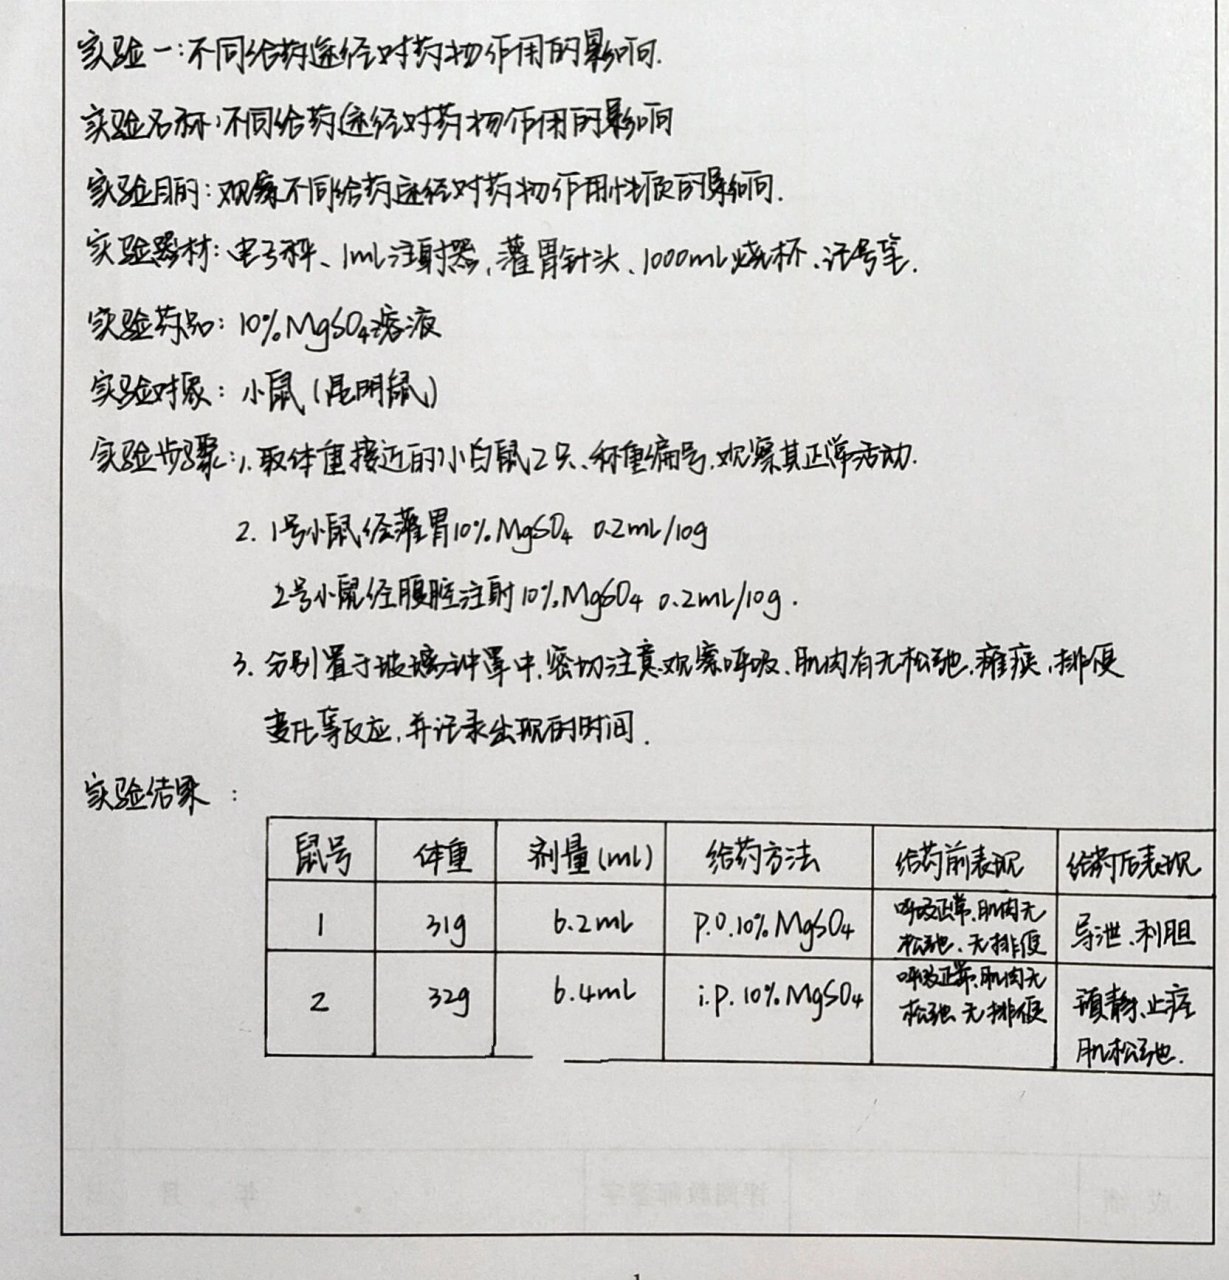 实验一:不同给药途径对药物作用的影响.
实验名称:不同给药途径对药物作用的影响
实验目的:观察不同给药途径对药物作用性质的影响.
实验器材:电子秤、1mL注射器、灌胃针头、1000mL烧杯、记号笔.
实验药品:10%MgSO4溶液
实验对象:小鼠(昆明鼠)
实验步骤:1.取体重接近的小白鼠2只、称重编号.观察其正常活动.
2. 1号小鼠经灌胃10%MgSO4 0.2mL/10g
2号小鼠经腹腔注射10%MgSO4 0.2mL/10g.
3. 分别置于玻璃钟罩中,密切注意观察呼吸、肌肉有无松弛、瘫痪、排便
变化等反应,并记录出现的时间.
实验结果:
鼠号 体重 剂量(ml) 给药方法 给药前表现 给药后表现
1 31g 6.2mL P.O.10%MgSO4 呼吸正常、肌肉无 导泄、利胆
松弛、无排便
2 32g 6.4mL i.P.10%MgSO4 呼吸正常、肌肉无 镇静、止痉
松弛 无排便 肌松弛.
成 绩 评阅教师签字 年 月 日
1